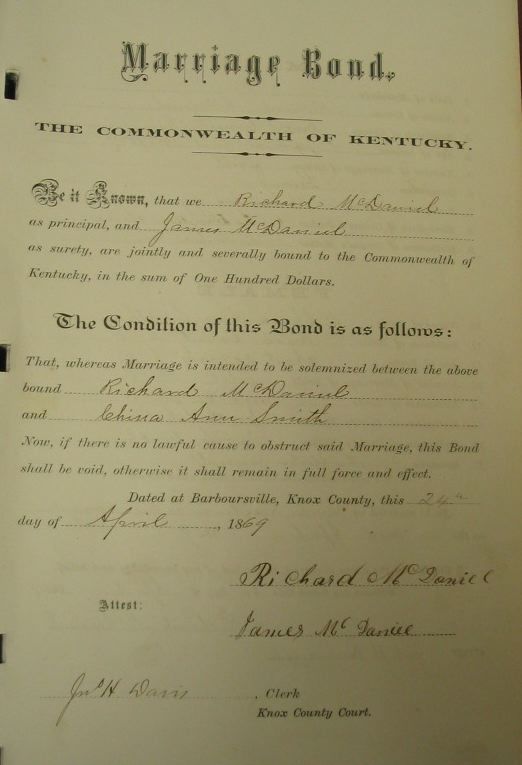 Marriage Bond.
THE COMMONWEALTH OF KENTUCKY.
Be it Known, that we Richard McDaniel
as principal, and James McDaniel
as surety, are jointly and severally bound to the Commonwealth of
Kentucky, in the sum of One Hundred Dollars.
The Condition of this Bond is as follows:
That, whereas Marriage is intended to be solemnized between the above
bound Richard McDaniel
and China Ann Smith
Now, if there is no lawful cause to obstruct said Marriage, this Bond
shall be void, otherwise it shall remain in full force and effect.
Dated at Barboursville, Knox County, this 24th
day of April, 1869
Richard McDaniel
Attest:
James McDaniel
Jno H Davis, Clerk
Knox County Court.